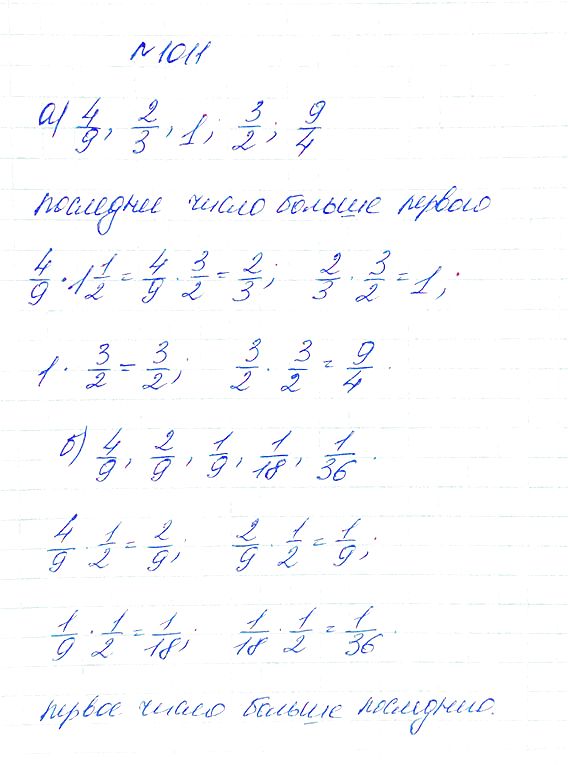 №1011
а) 4/9, 2/3, 1; 3/2; 9/4
последнее число больше первого
4/9 · 1 1/2 = 4/9 · 3/2 = 2/3; 2/3 · 3/2 = 1;
1 · 3/2 = 3/2; 3/2 · 3/2 = 9/4.
б) 4/9, 2/9, 1/9, 1/18, 1/36.
4/9 · 1/2 = 2/9; 2/9 · 1/2 = 1/9;
1/9 · 1/2 = 1/18; 1/18 · 1/2 = 1/36.
первое число больше последнего.